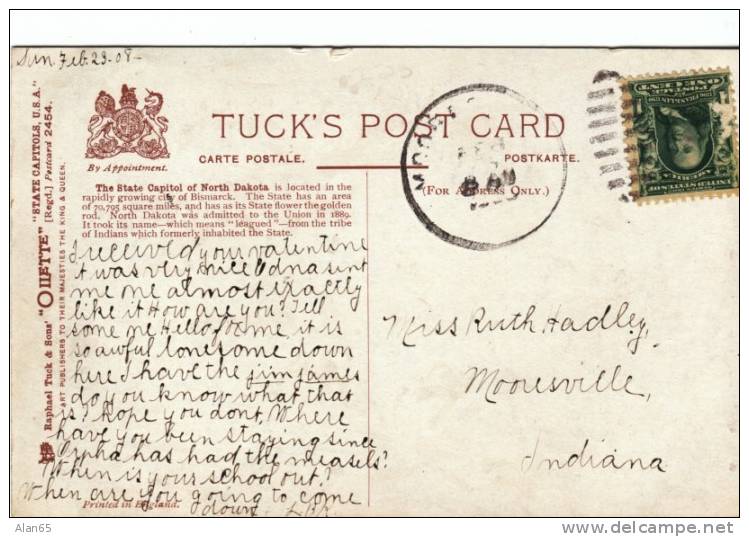 Sun Feb. 23-08-
TUCK'S POST CARD
CARTE POSTALE.
POSTKARTE.
(FOR ADDRESS ONLY.)
By Appointment.
Raphael Tuck & Sons' "OILETTE" "STATE CAPITOLS, U.S.A."
[Regd.] Postcard 2454.
ART PUBLISHERS TO THEIR MAJESTIES THE KING & QUEEN.
The State Capitol of North Dakota is located in the
rapidly growing city of Bismarck. The State has an area
of 70,795 square miles, and has as its State flower the golden
rod. North Dakota was admitted to the Union in 1889.
It took its name—which means "leagued"—from the tribe
of Indians which formerly inhabited the State.
I received your valentine
it was very nice Edna sent
me one almost exactly
like it How are you? Tell
some one Hello for me, it is
so awful lonesome down
here I have the jim james
do you know what that
is? hope you dont. Where
have you been staying since
Orpha has had the measels?
When is your school out?
When are you going to come
down
Printed in England.
Miss Ruth Hadley,
Mooresville,
Indiana
FEB
8 AM
POSTAGE
ONE CENT
UNITED STATES OF
AMERICA
Alan65
http://www.delcampe.net